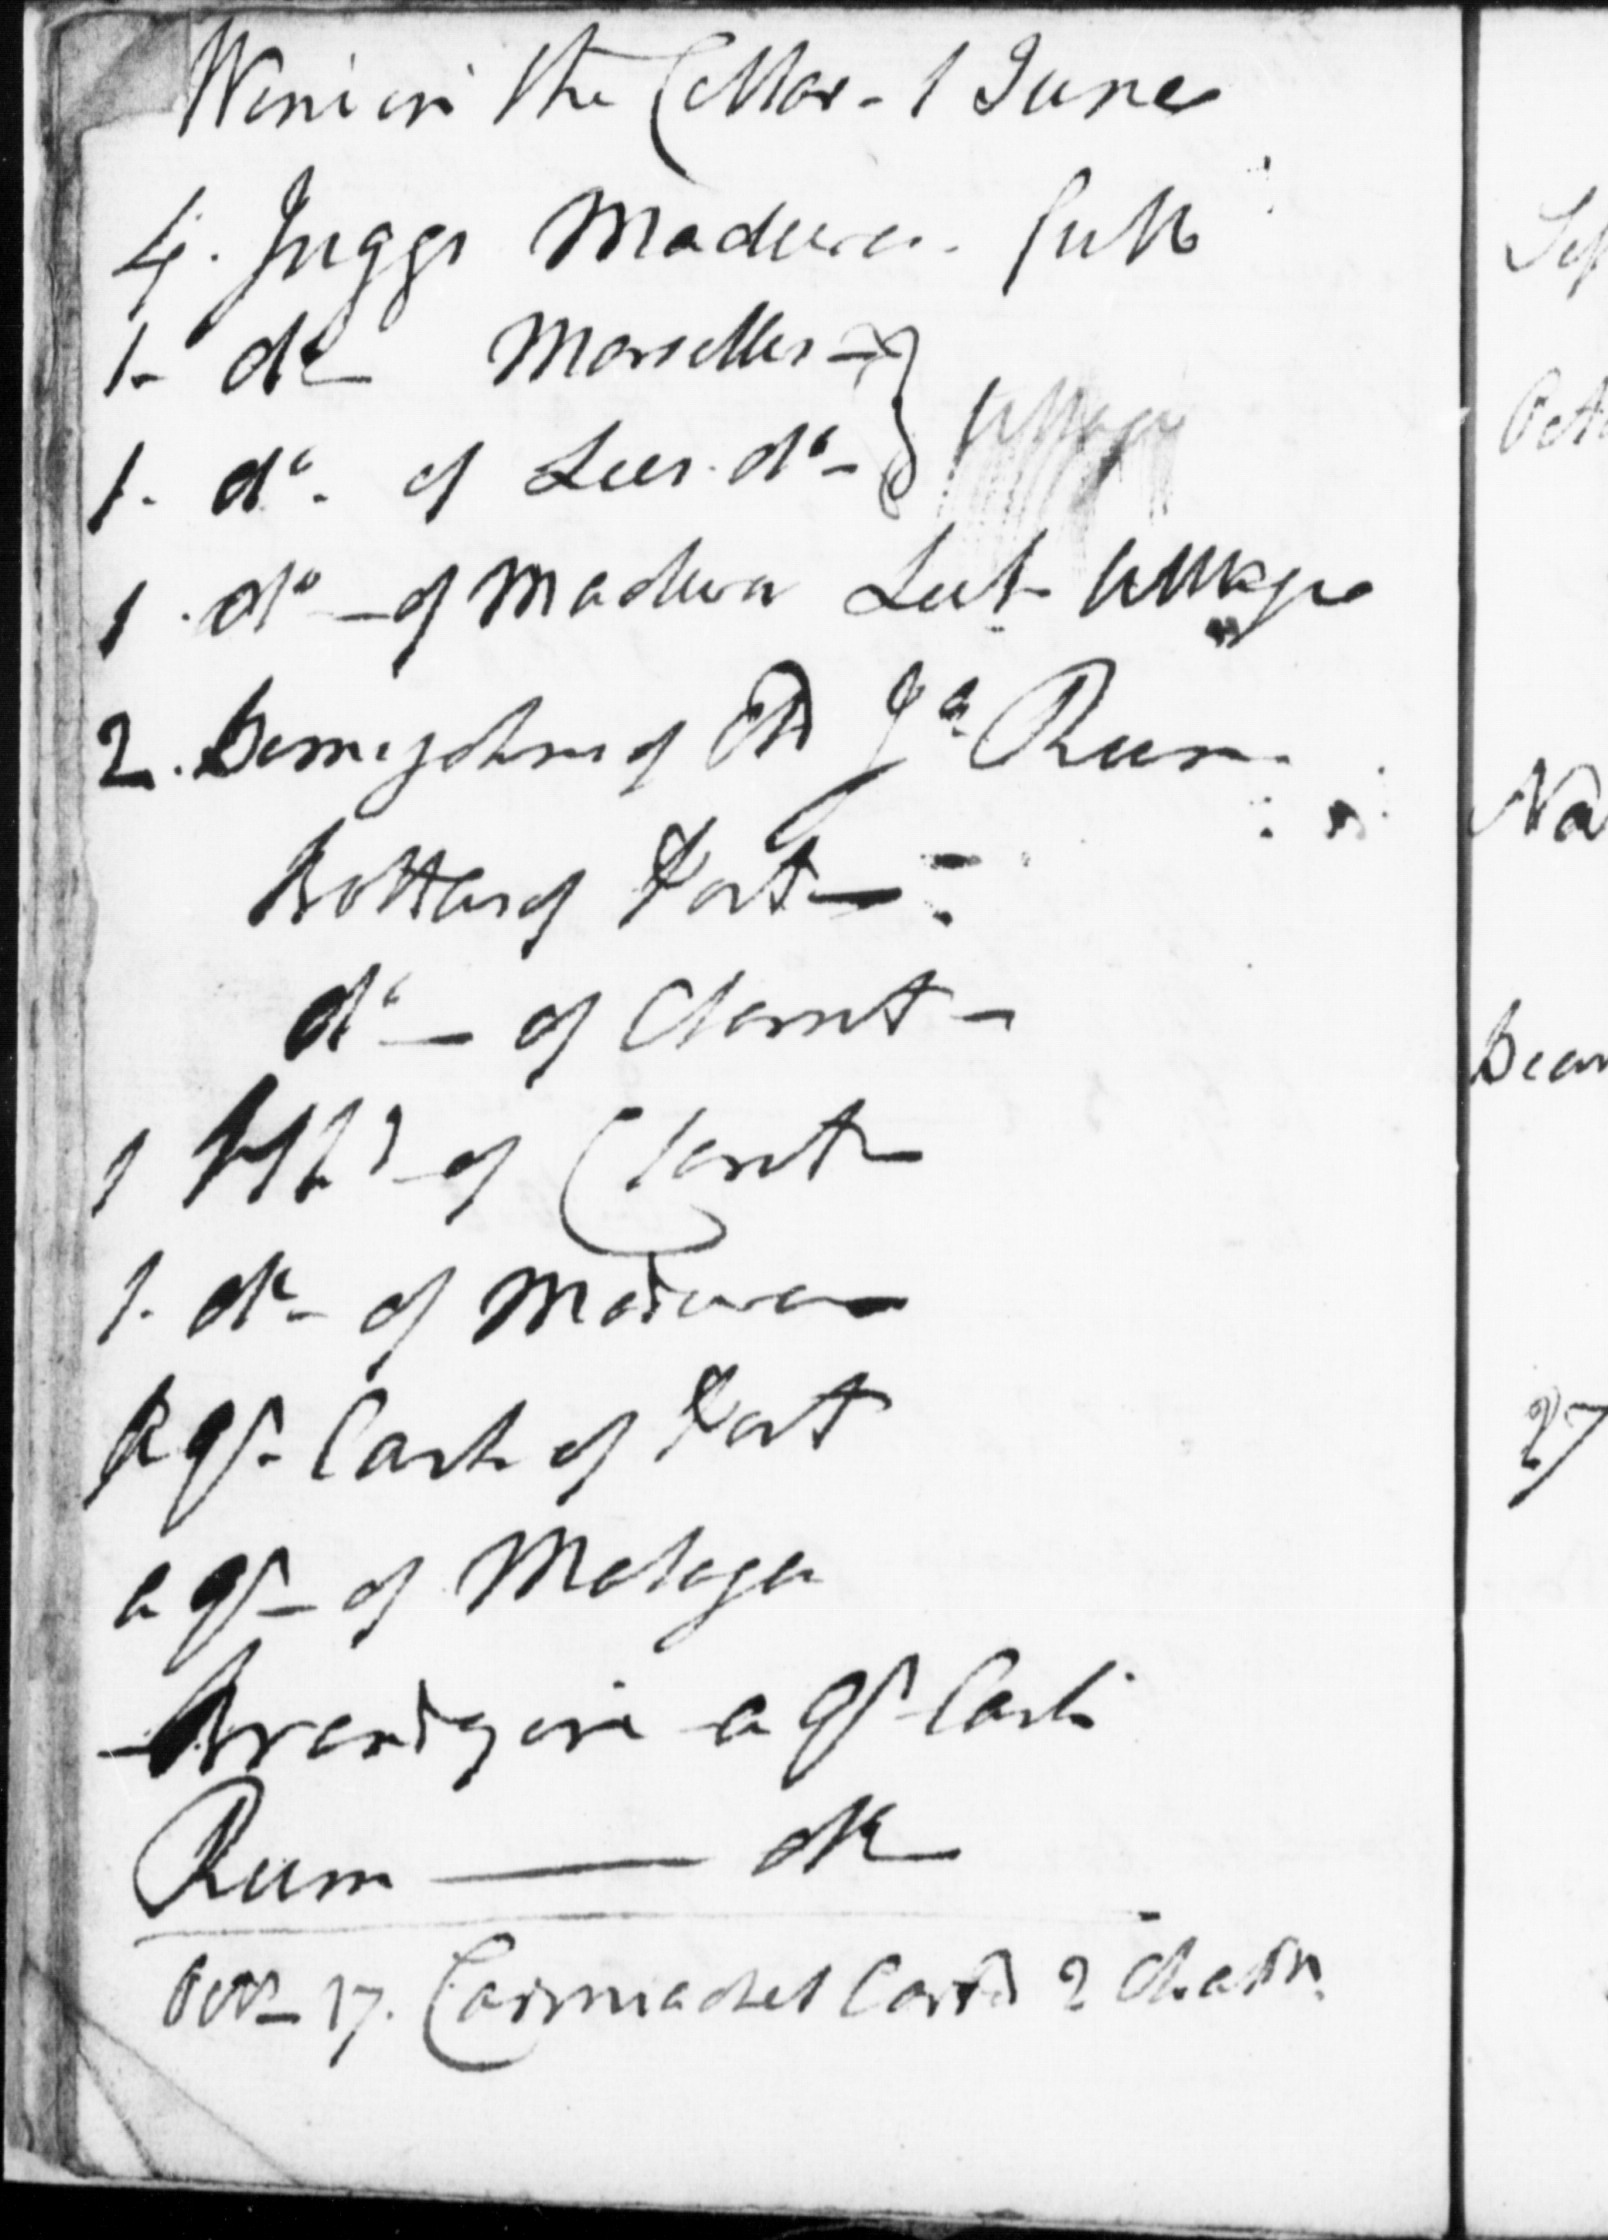 Wine in the Cellar - 1 June
4. Juggs Madeira - full
1 - do - Marsellis -
1 - do - of Lees do -
Ullage
1 - do - of Madeira Leet Ullage
2. Demyjohns of Old Ja Rum
Bottles of Port -
do - of Claret -
1 Hhd of Claret -
1 - do - of Madeira
A qr Cask of Port
a qr - of Malaga
Brandy in a qr Cask
Rum — do
Octr - 17. Cairmichel Cartd 2
Sep
Oct
No
27